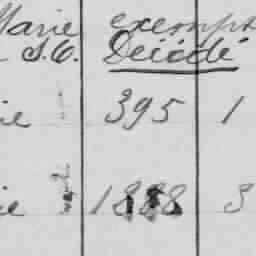 Marie exempt
S.O. Décédé
ie 395 1
ie 1888 3